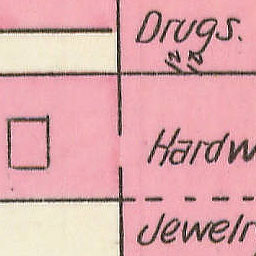 Drugs.
Hardw
Jewelr